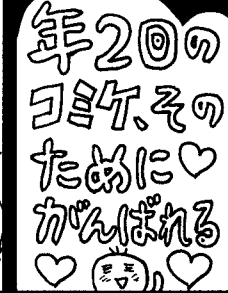 年2回の
コミケ、その
ために♡
がんばれる
♡♡